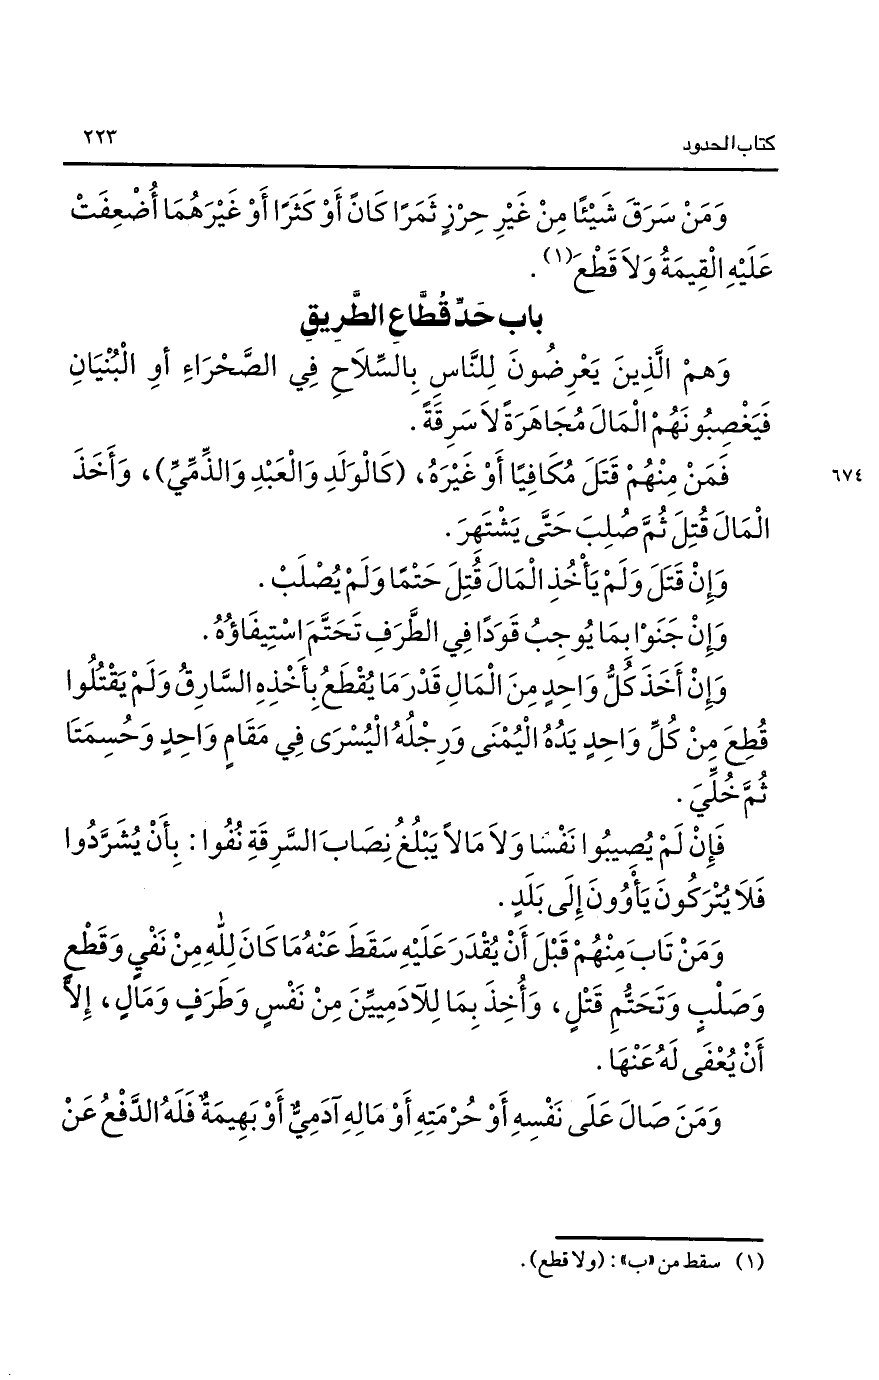 كتاب الحدود ٢٢٣
وَمَنْ سَرَقَ شَيْئًا مِنْ غَيْرِ حِرْزٍ ثَمَرًا كَانَ أَوْ كَثَرًا أَوْ غَيْرَهُمَا أُضْعِفَتْ
عَلَيْهِ الْقِيمَةُ وَلاَ قَطْعَ(١) .
باب حَدِّ قُطَّاعِ الطَّرِيقِ
وَهمْ الَّذِينَ يَعْرِضُونَ لِلنَّاسِ بِالسِّلاَحِ فِي الصَّحْرَاءِ أوِ الْبُنْيَانِ
فَيَغْصِبُونَهُمْ الْمَالَ مُجَاهَرَةً لاَ سَرِقَةً .
فَمَنْ مِنْهُمْ قَتَلَ مُكَافِيًا أَوْ غَيْرَهُ، (كَالْوَلَدِ وَالْعَبْدِ وَالذِّمِّيِّ)، وَأَخَذَ ٦٧٤
الْمَالَ قُتِلَ ثُمَّ صُلِبَ حَتَّى يَشْتَهِرَ .
وَإِنْ قَتَلَ وَلَمْ يَأْخُذِ الْمَالَ قُتِلَ حَتْمًا وَلَمْ يُصْلَبْ .
وَإِنْ جَنَوْا بِمَا يُوجِبُ قَوَدًا فِي الطَّرَفِ تَحَتَّمَ اسْتِيفَاؤُهُ .
وَإِنْ أَخَذَ كُلُّ وَاحِدٍ مِنَ الْمَالِ قَدْرَ مَا يُقْطَعُ بِأَخْذِهِ السَّارِقُ وَلَمْ يَقْتُلُوا
قُطِعَ مِنْ كُلِّ وَاحِدٍ يَدُهُ الْيُمْنَى وَرِجْلُهُ الْيُسْرَى فِي مَقَامٍ وَاحِدٍ وَحُسِمَتَا
ثُمَّ خُلِّيَ .
فَإِنْ لَمْ يُصِيبُوا نَفْسًا وَلاَ مَالاً يَبْلُغُ نِصَابَ السَّرِقَةِ نُفُوا : بِأَنْ يُشَرَّدُوا
فَلَا يُتْرَكُونَ يَأْوُونَ إِلَى بَلَدٍ .
وَمَنْ تَابَ مِنْهُمْ قَبْلَ أَنْ يُقْدَرَ عَلَيْهِ سَقَطَ عَنْهُ مَا كَانَ لِلّٰهِ مِنْ نَفْيٍ وَقَطْعٍ
وَصَلْبٍ وَتَحَتُّمِ قَتْلٍ، وَأُخِذَ بِمَا لِلآدَمِيِّينَ مِنْ نَفْسٍ وَطَرَفٍ وَمَالٍ، إِلاَّ
أَنْ يُعْفَى لَهُ عَنْهَا .
وَمَنَ صَالَ عَلَى نَفْسِهِ أَوْ حُرْمَتِهِ أَوْ مَالِهِ آدَمِيٌّ أَوْ بَهِيمَةٌ فَلَهُ الدَّفْعُ عَنْ
(١) سقط من «ب» : (ولا قطع) .